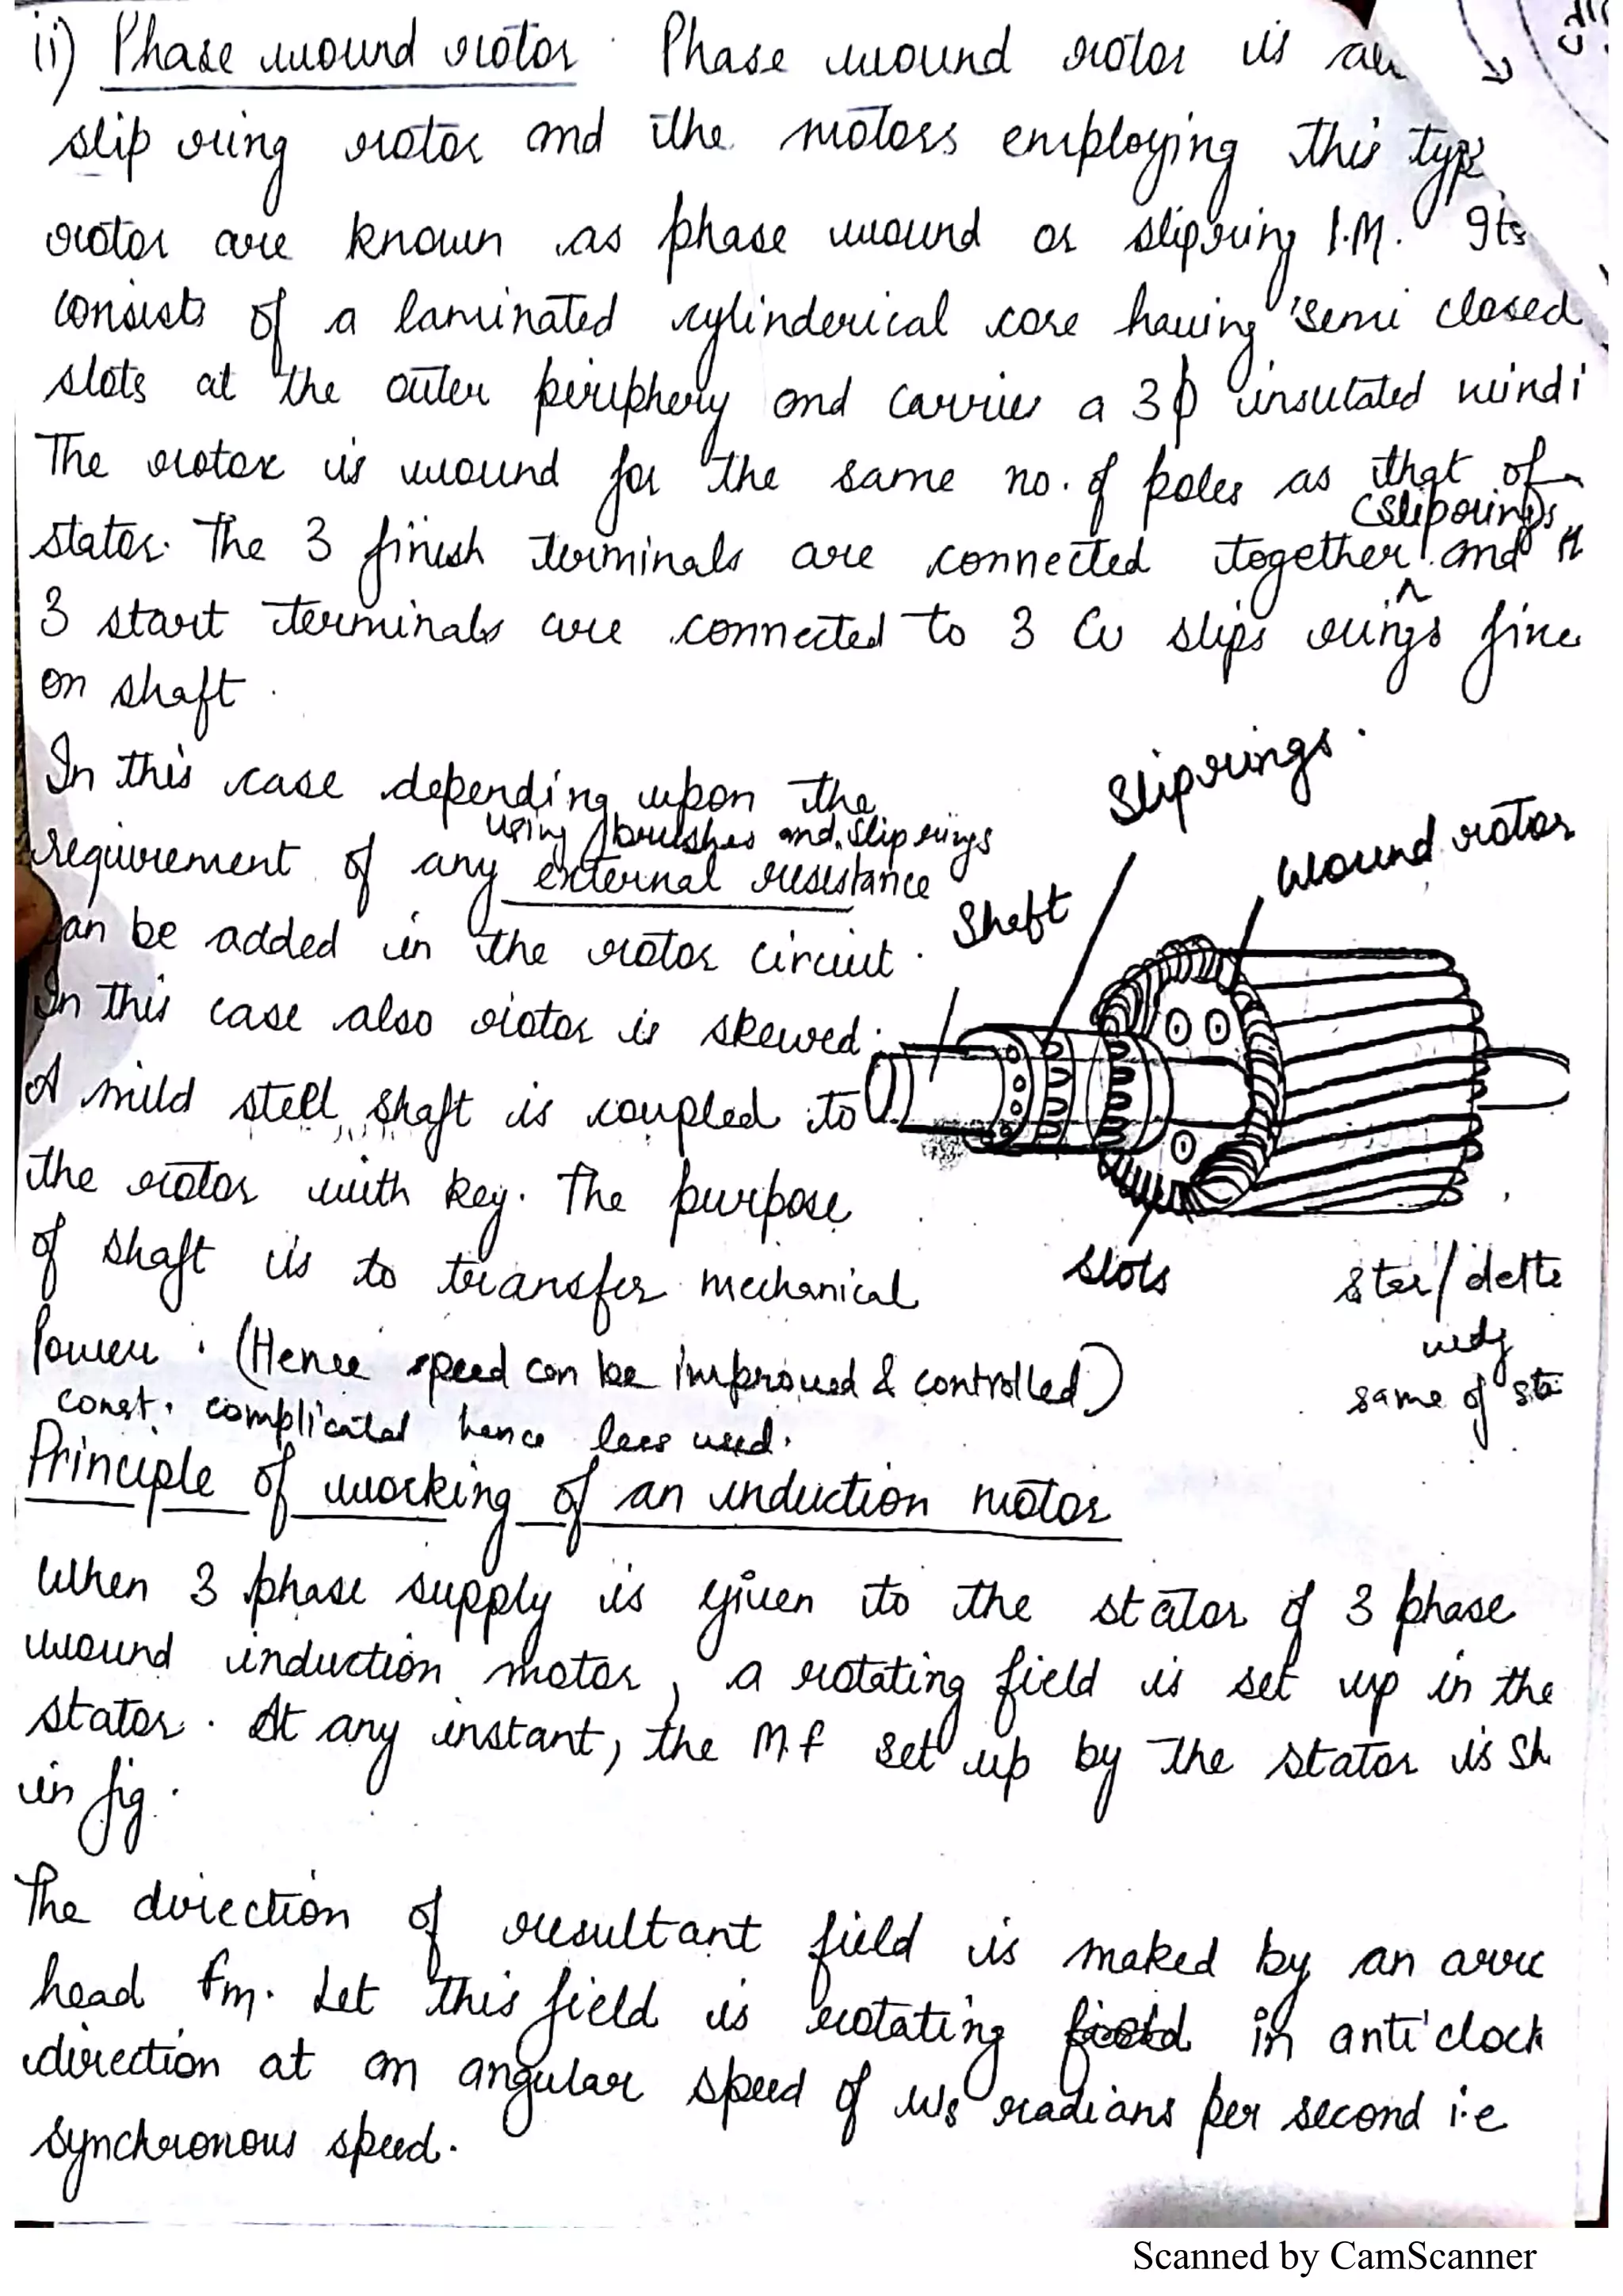 ii) Phase wound rotor Phase wound rotor is
slip ring rotor and the motors employing this type
rotor are known as phase wound or slipring I.M. Its
consists of a laminated cylinderical core having semi closed
slots at the outer periphery and carries a 3ϕ insulated windi
The rotor is wound for the same no. of poles as that of
(sliprings)
stator. The 3 finish terminals are connected together. and
3 start terminals are connected to 3 Cu slips rings
on shaft.
In this case depending upon the
using brushes and slip rings
requirement of any external resistance
can be added in the rotor circuit.
In this case also rotor is skewed.
A mild stell shaft is coupled to
the rotor with key. The purpose
of shaft is to transfer mechanical
Power. (Hence speed can be improved & controlled)
const. complicated hence less used.
Sliprings.
Wound rotor
Shaft
Slots
star/delta
wdg
same of sta
Principle of working of an induction motor
When 3 phase supply is given to the stator of 3 phase
wound induction motor, a rotating field is set up in the
stator. At any instant, the M.f set up by the stator is sh
in fig.
The direction of resultant field is maked by an arro
head fm. Let this field is rotating field in anti'clock
direction at an angular speed of ws radians per second i.e
synchronous speed.
Scanned by CamScanner